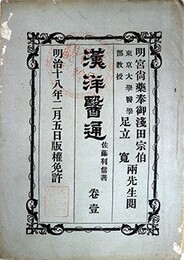 明宮尙藥奉御淺田宗伯
東京大學醫學部教授 足立寬 兩先生閱
漢洋醫通
佐藤利信著
卷壹
明治十八年二月五日版權免許